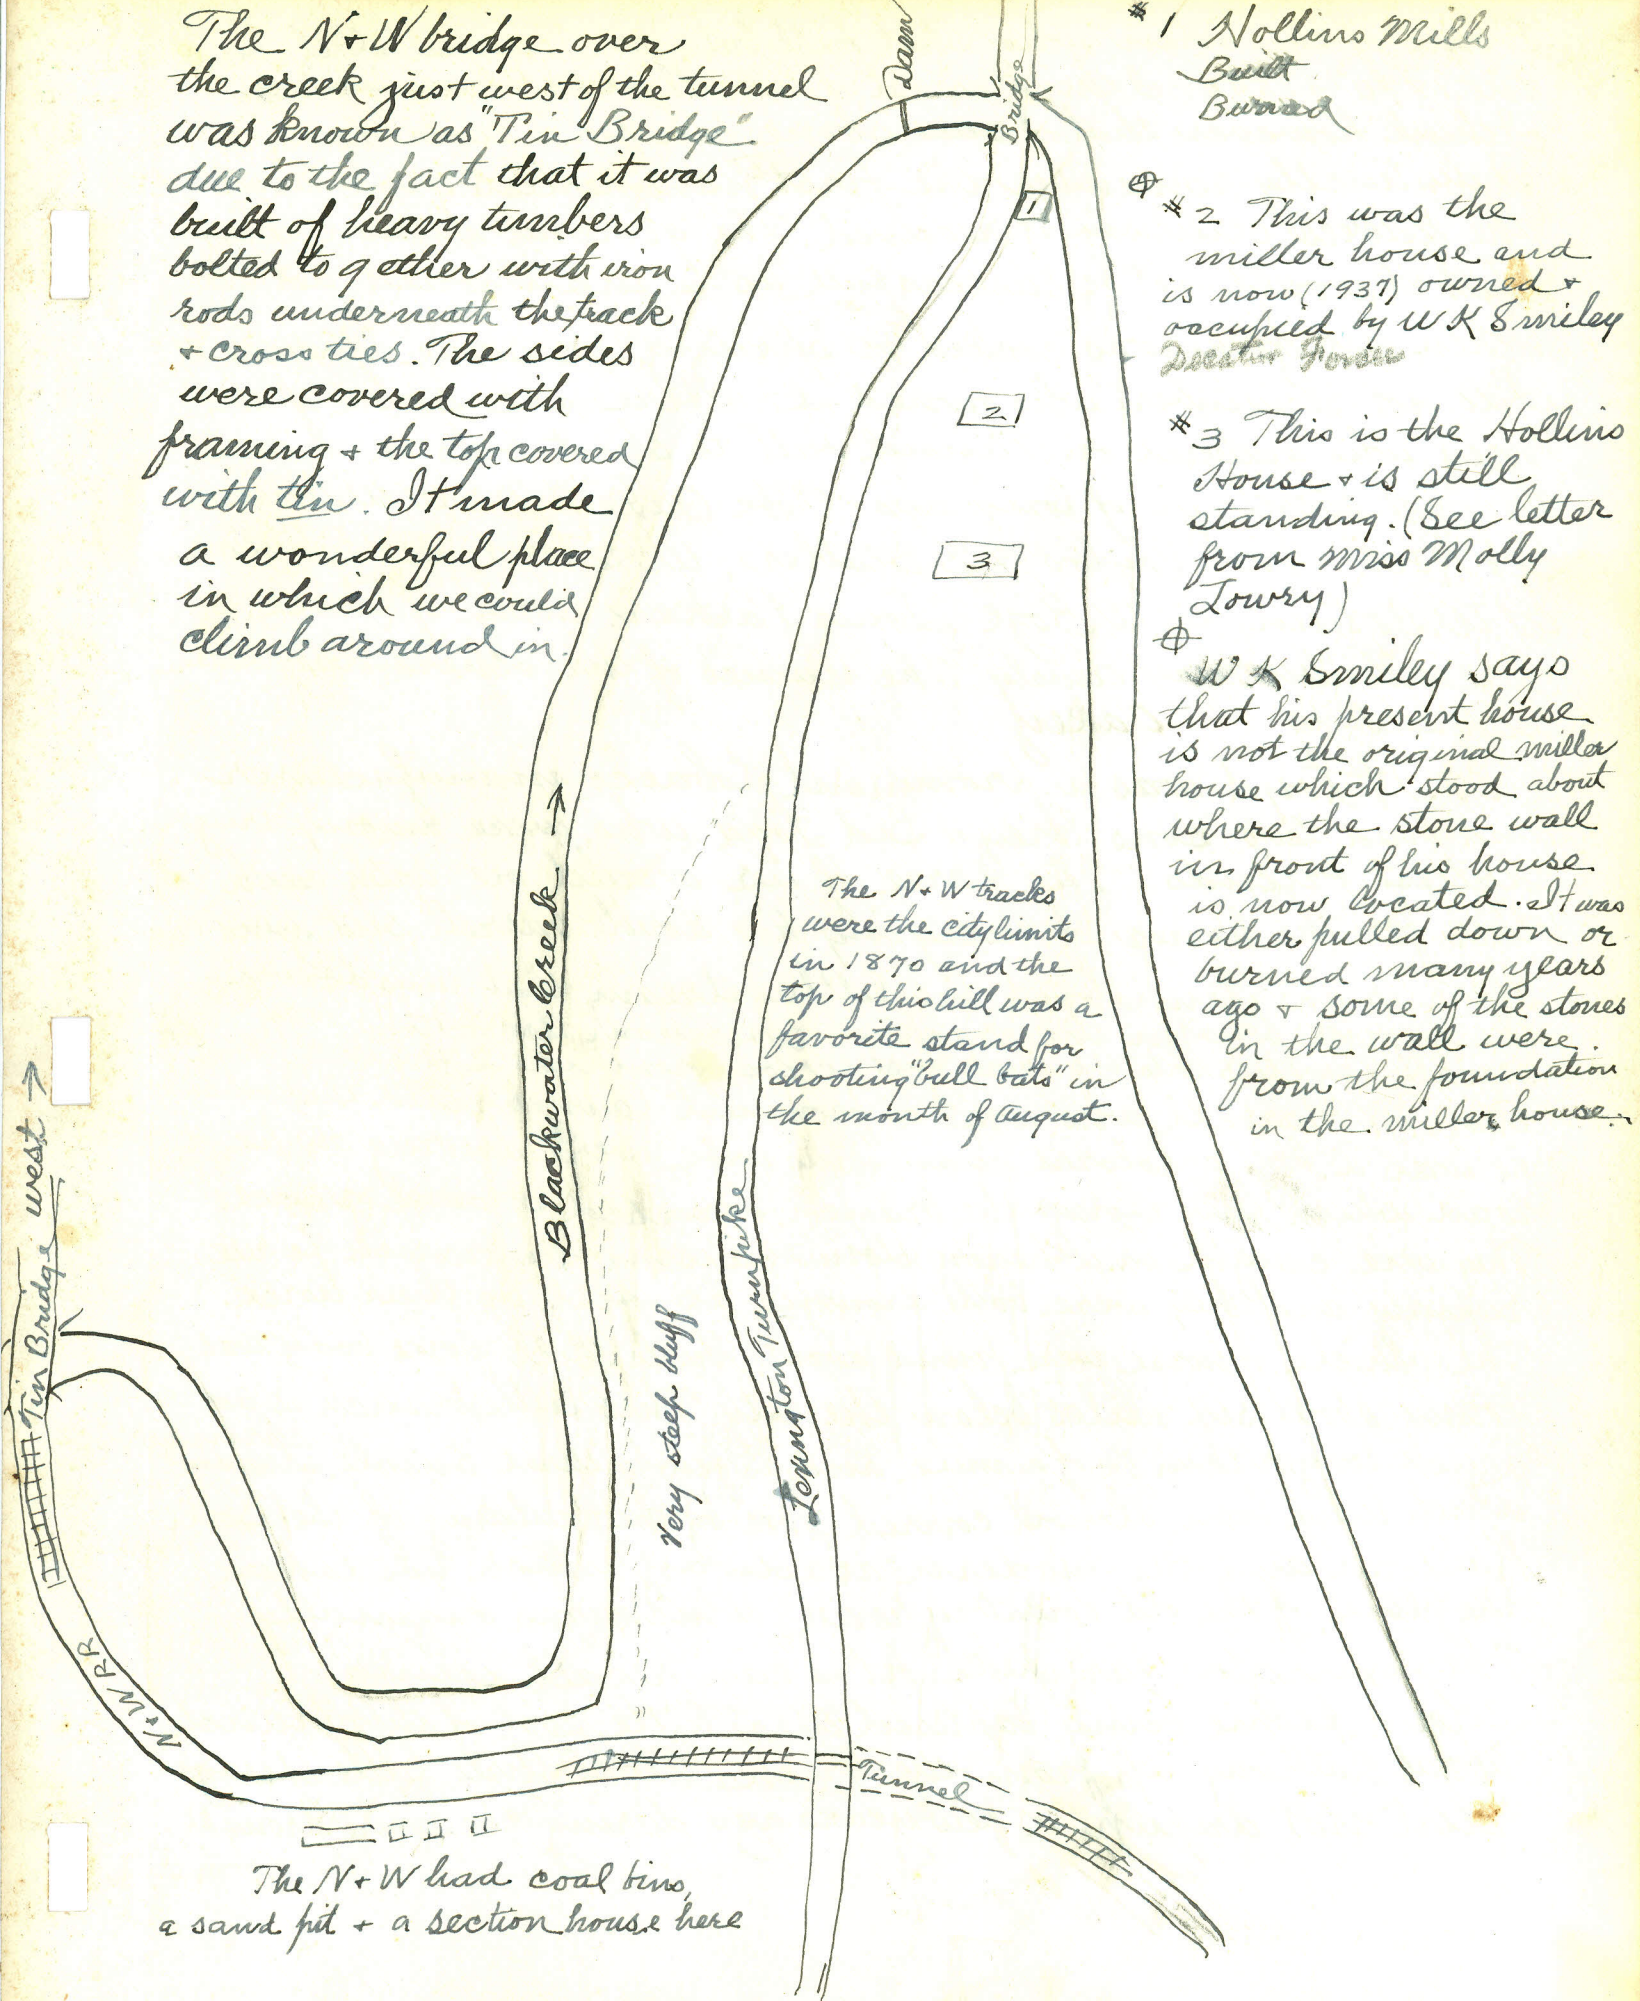 The N+W bridge over
the creek just west of the tunnel
was known as "Tin Bridge"
due to the fact that it was
built of heavy timbers
bolted to gether with iron
rods underneath the track
+ cross ties. The sides
were covered with
framing + the top covered
with tin. It made
a wonderful place
in which we could
climb around in.
Dam
Bridge
1
2
3
# 1 Hollins Mills
Built
Burned
# 2 This was the
miller house and
is now (1937) owned +
occupied by W K Smiley
# 3 This is the Hollins
House + is still
standing. (See letter
from Miss Molly
Lowry)
W K Smiley says
that his present house
is not the original miller
house which stood about
where the stone wall
in front of his house
is now located. It was
either pulled down or
burned many years
ago + some of the stones
in the wall were
from the foundation
in the miller house.
Blackwater Creek
The N+W tracks
were the city limits
in 1870 and the
top of this hill was a
favorite stand for
shooting "bull bats" in
the month of August.
Very steep bluff
Lexington Turnpike
Tin Bridge west
N+W RR
Tunnel
The N+W had coal bins,
a sand pit + a section house here